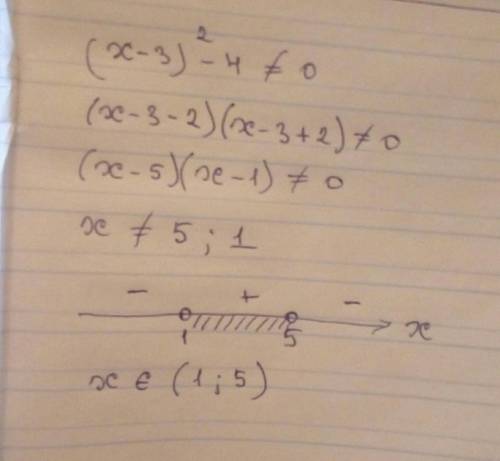 (x-3)² - 4 ≠ 0
(x-3-2)(x-3+2) ≠ 0
(x-5)(x-1) ≠ 0
x ≠ 5 ; 1
- + -
1 5 x
x ∈ (1 ; 5)